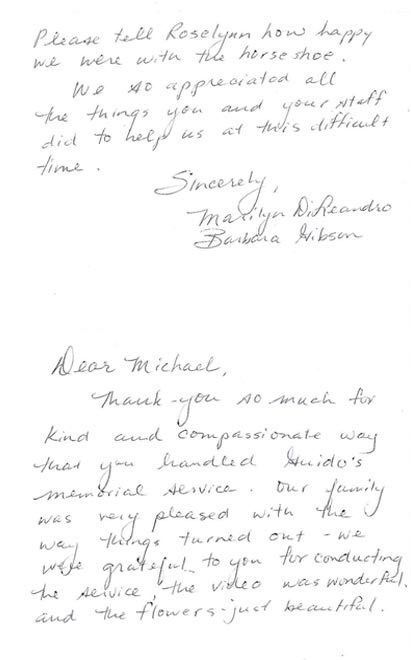 Please tell Roselynn how happy
we were with the horseshoe.
We so appreciated all
the things you and your staff
did to help us at this difficult
time.
Sincerely,
Marilyn DiLeandro
Barbara Gibson
Dear Michael,
Thank-you so much for
kind and compassionate way
that you handled Guido's
memorial service. Our family
was very pleased with the
way things turned out - we
were grateful to you for conducting
the service, the video was wonderful.
and the flowers - just beautiful.